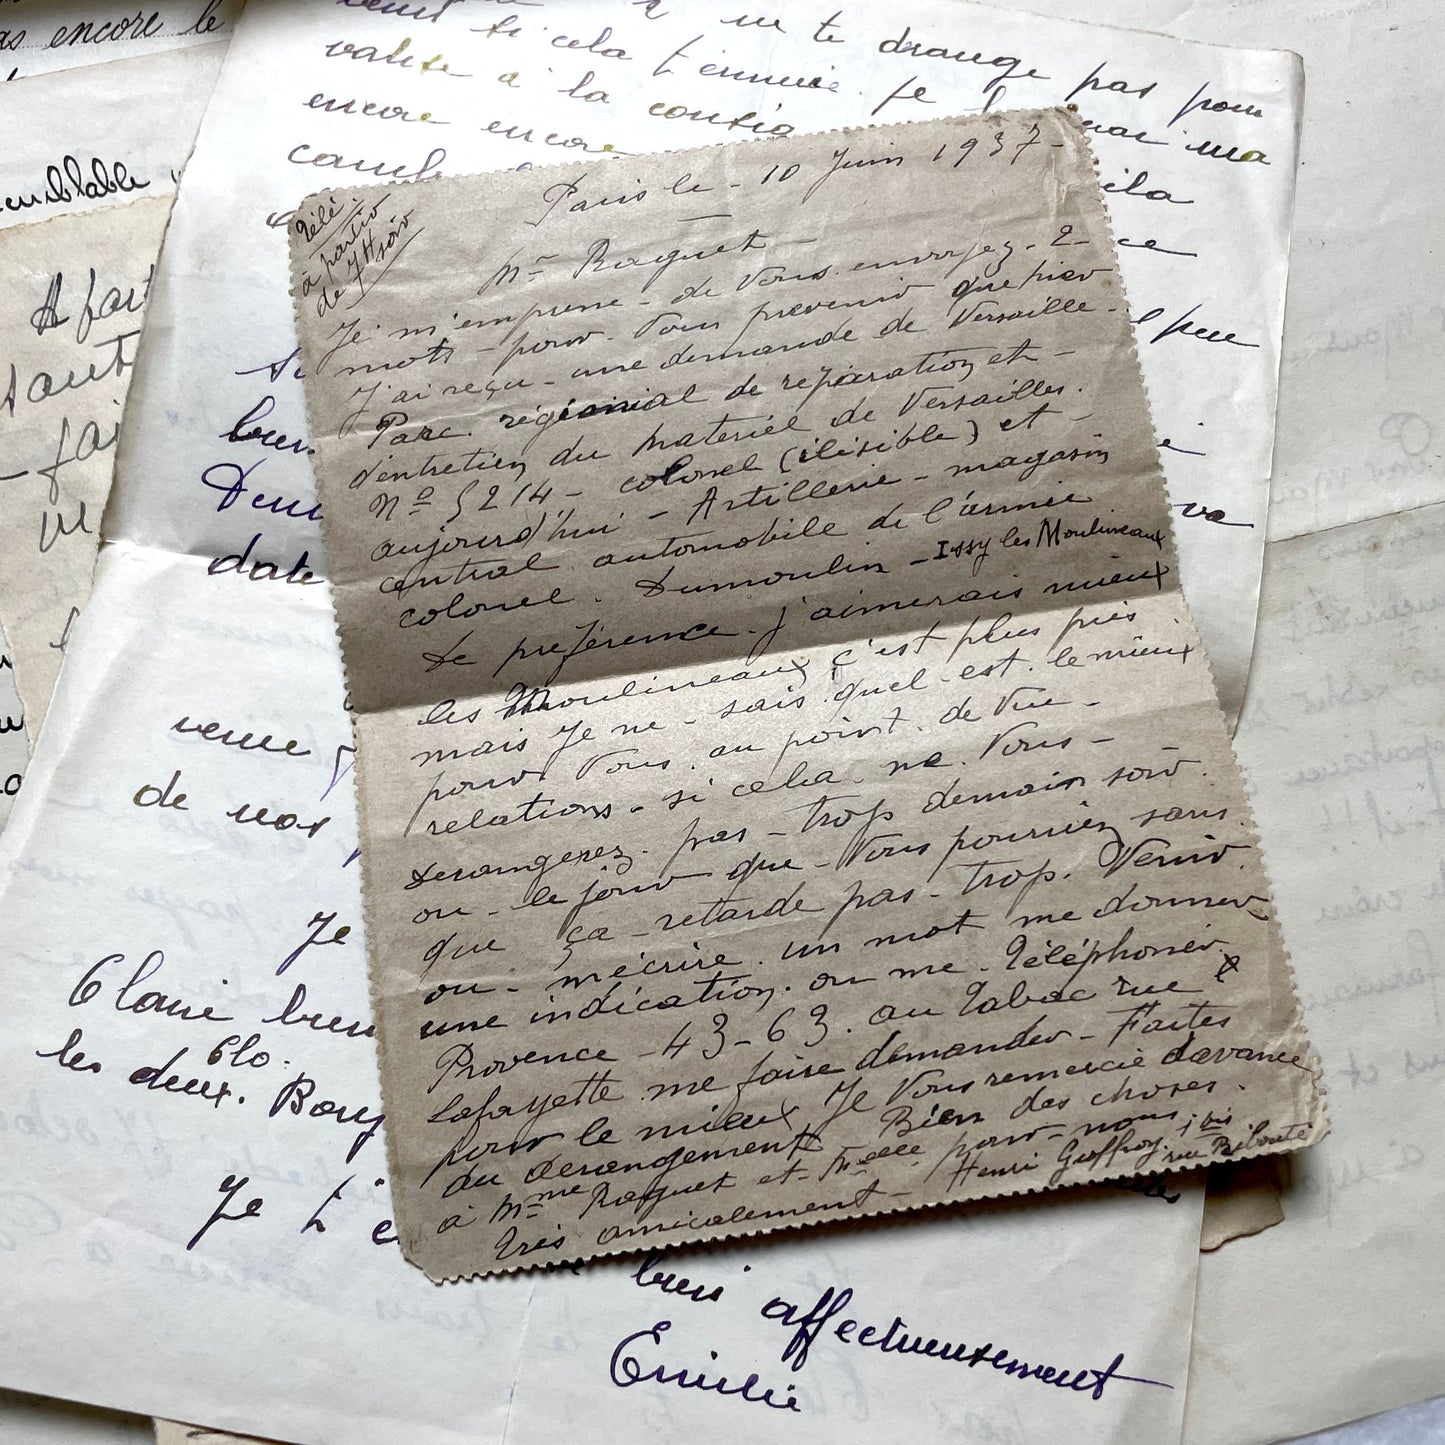 as encore le
te drange pas pour
si cela t'ennuie. je
valise à la consig
encore encore
ila
ce
semblable
A fait
tant
fai
peu
bien
date
va
Télé.
à partir
de 7H soir
Paris le - 10 Juin 1937-
Mr Raguet -
Je m'emprune - de Vous envoyez - 2
mots - pour - Vous prevenir que hier
J'ai reçu - une demande de Versaille -
Parc régionial de réparation et -
d'entretien du matériel de Versailles.
No 5214 - colonel (ilisible) et -
aujourd'hui - Artillerie - magasin
central automobile de l'armée
colonel. Dumoulin - Issy les Moulineaux
de préférence. j'aimerais mieux
les Moulineaux c'est plus près
mais je ne - sais quel - est. le mieux
pour Vous. au point. de Vue -
relations - si cela. ne. Vous -
derangerez. pas - trop demain soir.
ou - le jour que - Vous pourriez sans.
que ça - retarde pas - trop. Venir.
ou - m'écrire. un mot me donner
une indication. ou me. Téléphoner.
Provence - 43-63. au Tabac rue
Lafayette me faire demander - Faites
pour le mieux Je Vous remercie d'avance
du derangement Bien des choses.
à Mme Raguet et - Felle pour - nous.
Très amicalement - Henri Geoffroy. 1 bis
rue Ribouté
venue
de nos
Je
bien
les deux.
Je t'e
bien affectueusement
Emilie